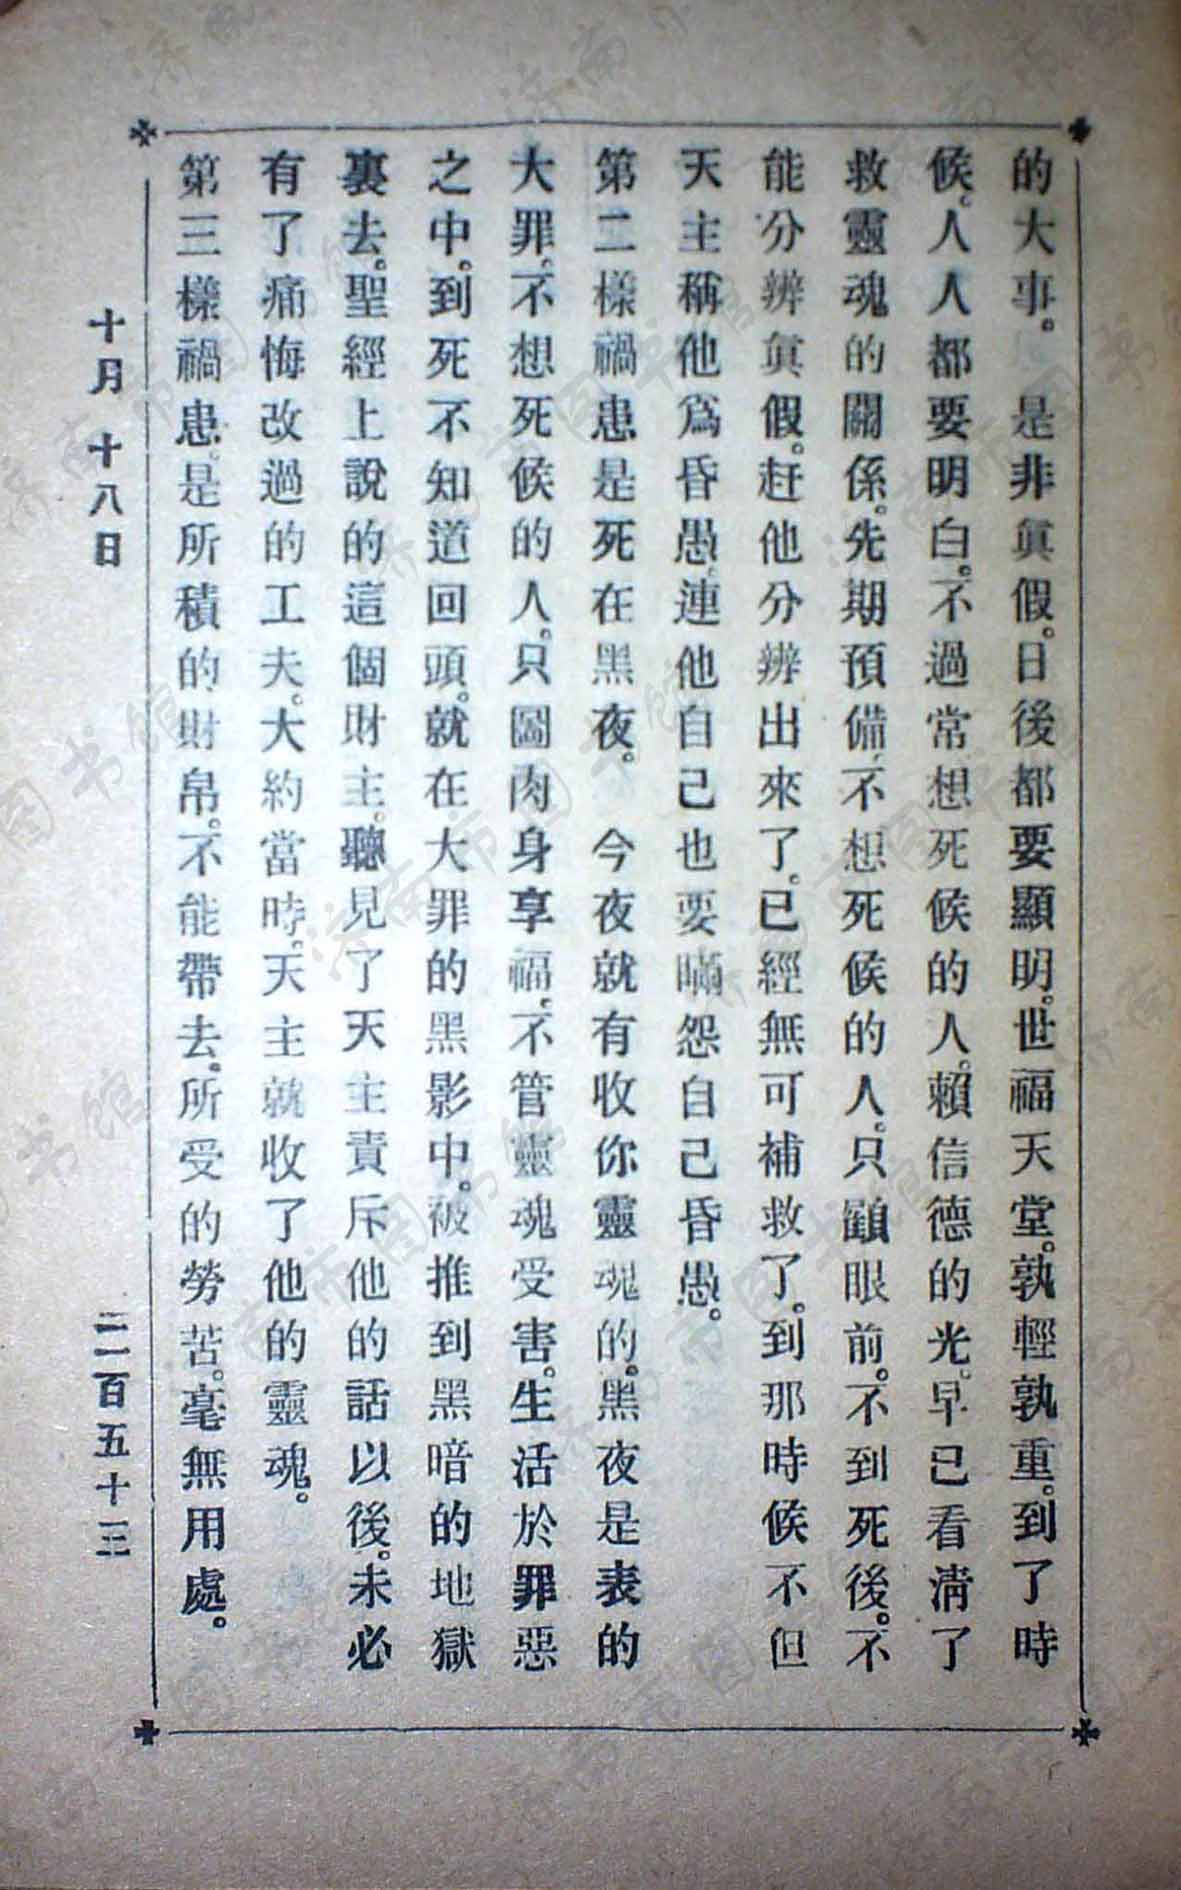 的大事。是非眞假。日後都要顯明。世福天堂。孰輕孰重。到了時
候。人人都要明白。不過常想死候的人。賴信德的光。早已看淸了
救靈魂的關係。先期預備、不想死候的人。只顧眼前。不到死後。不
能分辨眞假。赶他分辨出來了。已經無可補救了。到那時候不但
天主稱他爲昏愚。連他自己也要瞞怨自己昏愚。
第二樣禍患是死在黑夜。今夜就有收你靈魂的。黑夜是表的
大罪。不想死候的人。只圖肉身享福、不管靈魂受害。生活於罪惡
之中。到死不知道回頭。就在大罪的黑影中。被推到黑暗的地獄
裏去。聖經上說的這個財主。聽見了天主責斥他的話以後。未必
有了痛悔改過的工夫。大約當時。天主就收了他的靈魂。
第三樣禍患。是所積的財帛。不能帶去。所受的勞苦。毫無用處。
十月十八日
二百五十三